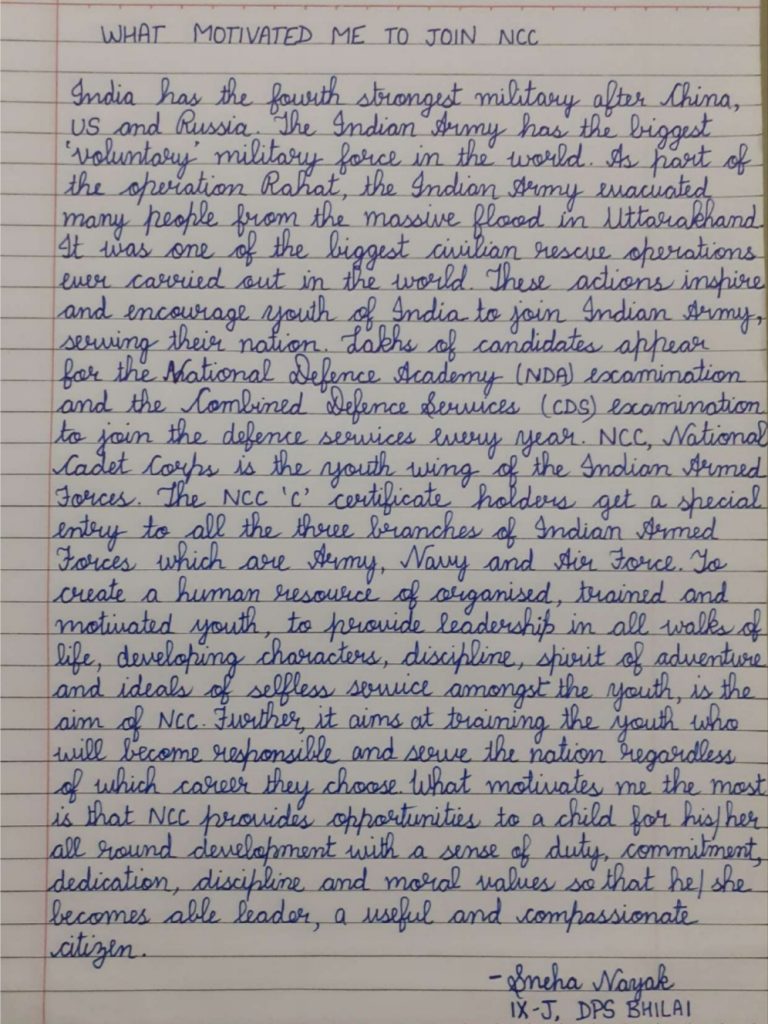 WHAT MOTIVATED ME TO JOIN NCC
India has the fourth strongest military after China,
US and Russia. The Indian Army has the biggest
'voluntary' military force in the world. As part of
the operation Rahat, the Indian Army evacuated
many people from the massive flood in Uttarakhand.
It was one of the biggest civilian rescue operations
ever carried out in the world. These actions inspire
and encourage youth of India to join Indian Army,
serving their nation. Lakhs of candidates appear
for the National Defence Academy (NDA) examination
and the Combined Defence Services (CDS) examination
to join the defence services every year. NCC, National
Cadet Corps is the youth wing of the Indian Armed
Forces. The NCC 'C' certificate holders get a special
entry to all the three branches of Indian Armed
Forces which are Army, Navy and Air Force. To
create a human resource of organised, trained and
motivated youth, to provide leadership in all walks of
life, developing characters, discipline, spirit of adventure
and ideals of selfless service amongst the youth, is the
aim of NCC. Further, it aims at training the youth who
will become responsible and serve the nation regardless
of which career they choose. What motivates me the most
is that NCC provides opportunities to a child for his/her
all round development with a sense of duty, commitment,
dedication, discipline and moral values so that he/she
becomes able leader, a useful and compassionate
citizen.
- Sneha Nayak
IX-J, DPS BHILAI